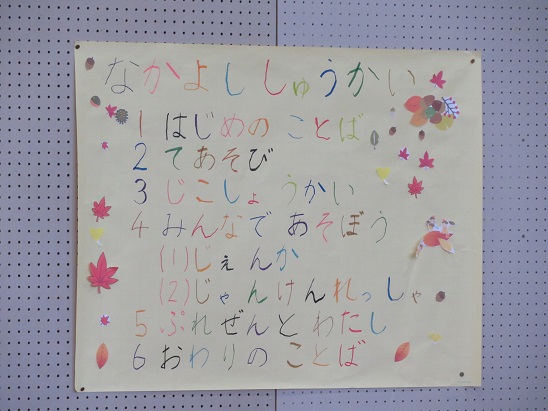 なかよししゅうかい
1 はじめの ことば
2 てあそび
3 じこしょうかい
4 みんなで あそぼう
(1)じぇんか
(2)じゃんけんれっしゃ
5 ぷれぜんと わたし
6 おわりの ことば